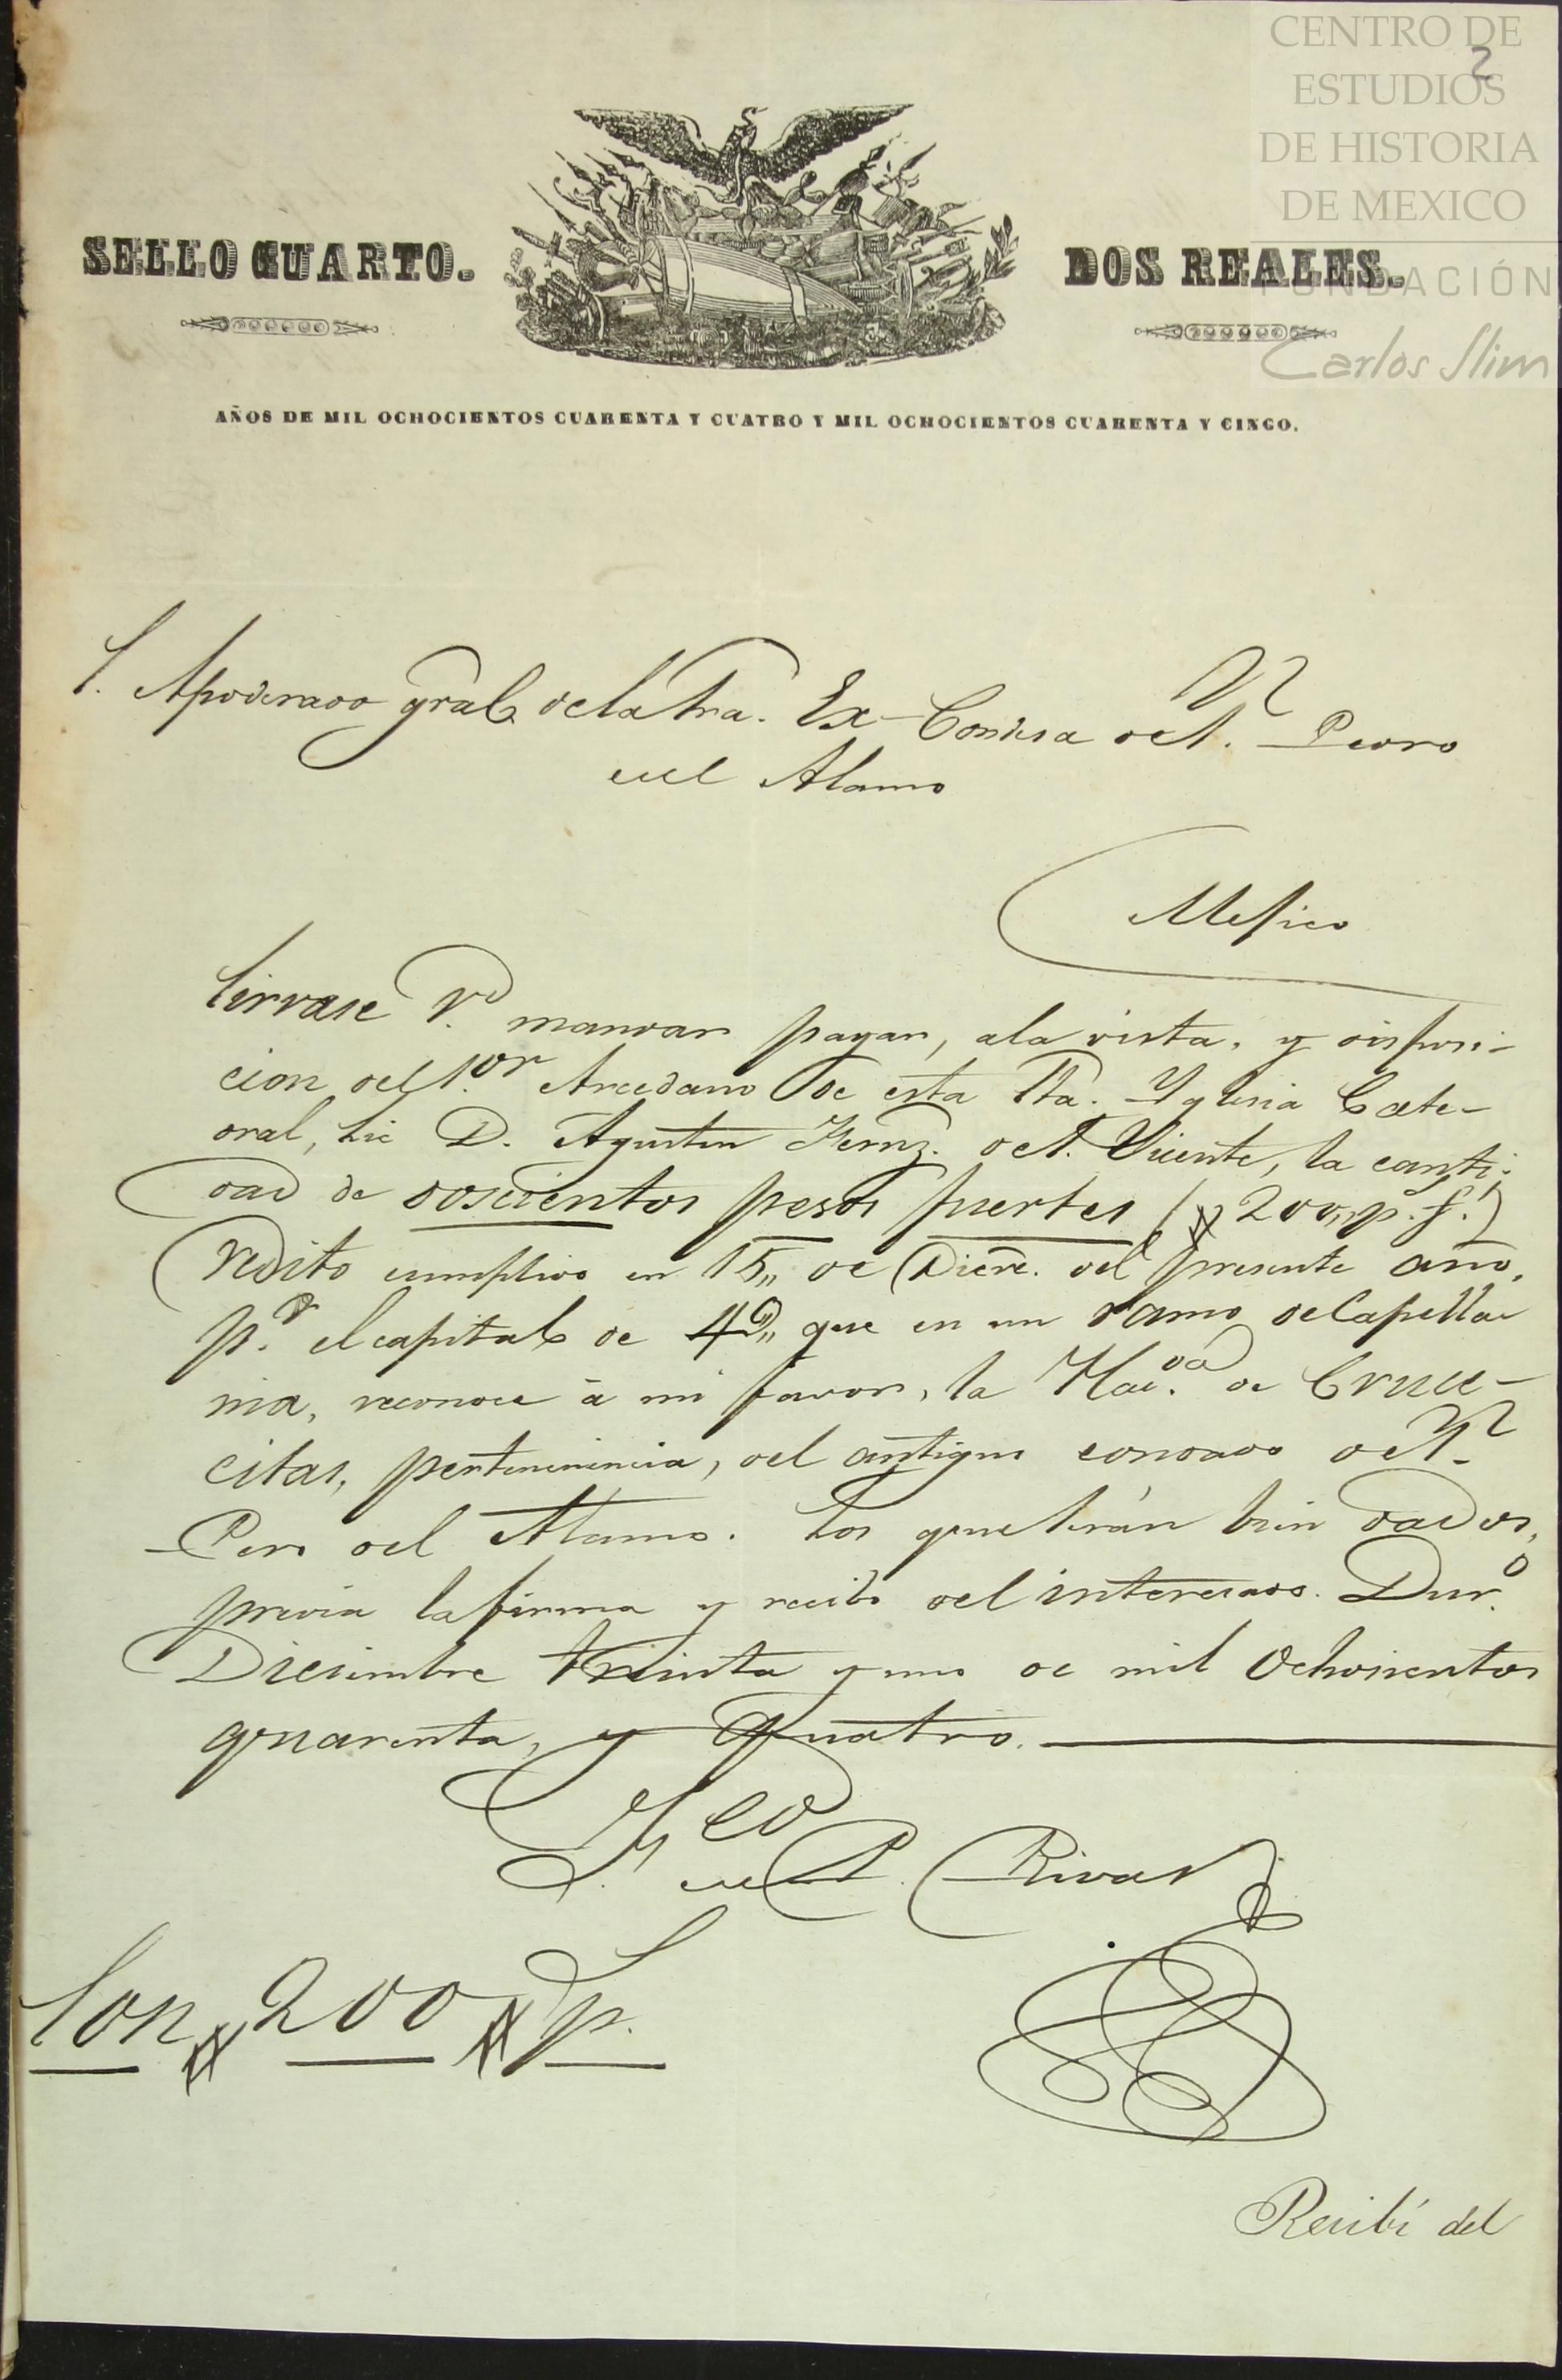 CENTRO DE
ESTUDIOS
DE HISTORIA
DE MEXICO
FUNDACIÓN
Carlos Slim
2
SELLO CUARTO.
DOS REALES.
AÑOS DE MIL OCHOCIENTOS CUARENTA Y CUATRO Y MIL OCHOCIENTOS CUARENTA Y CINCO.
S. Apoderado gral de la Sra. Ex-Condesa de S.n Pedro
del Alamo
Mejico
Sirvase V.d mandar pagar, ala vista, y disposi-
cion del S.or Arcediano de esta Sta. Yglesia Cate-
dral, Lic D. Agustin Fernz. de S. Vicente, la canti-
dad de doscientos pesos fuertes (200,, p. f.)
redito cumplido en 15,, de Dicre. del presente año,
p.r el capital de 4,, que en un ramo de Capella
nia, reconoce á mi favor, la Hac.da de Cruce-
citas, pertenencia, del antiguo condado de S.n
Pero del Alamo. Los que serán bien dados,
previa la firma y recibo del interesado. Dur.o
Diciembre treinta y uno de mil Ochocientos
quarenta, y quatro.
J.
de P. Rivas
Son 200 p.
Recibí del